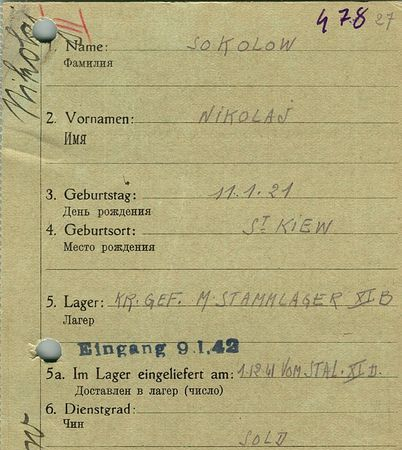 478 27
Nikolaj
III
1. Name: SOKOLOW
Фамилия
2. Vornamen: NIKOLAJ
Имя
3. Geburtstag: 11.1.21
День рождения
4. Geburtsort: ST KIEW
Место рождения
5. Lager: KR. GEF. M. STAMMLAGER XI B
Лагер
Eingang 9.1.42
5a. Im Lager eingeliefert am: 1.12.41 VOM STAL. XI D.
Доставлен в лагер (число)
6. Dienstgrad:
Чин
SOLD